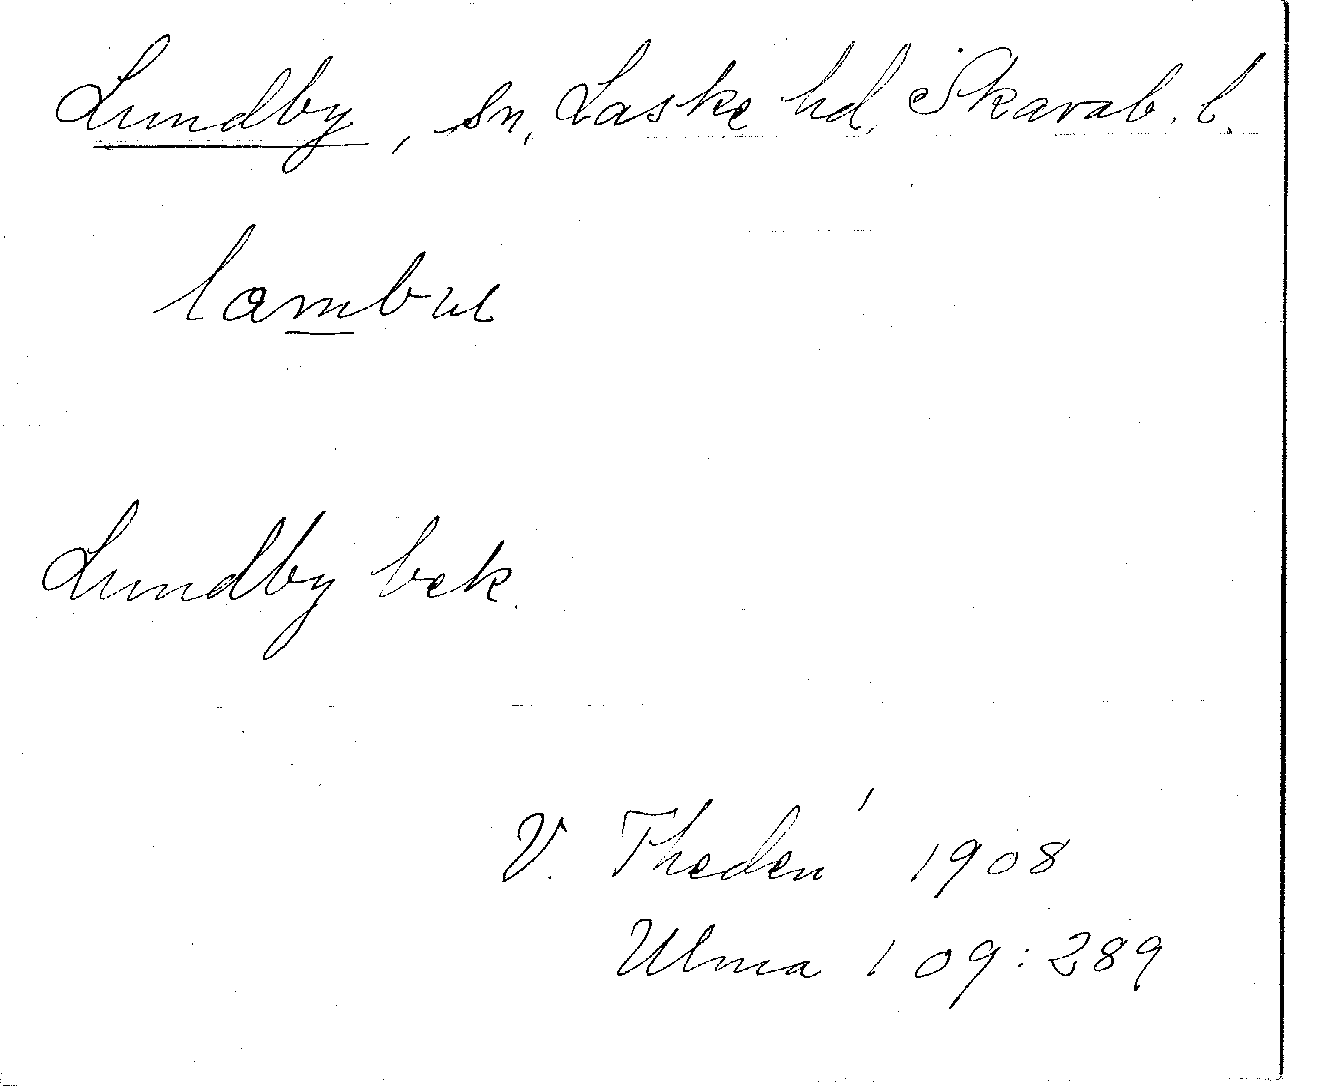 Lundby, sn, Laske hd, Skarab. l.
lambu
Lundby bek.
V. Thedén 1908
Ulma 109:289